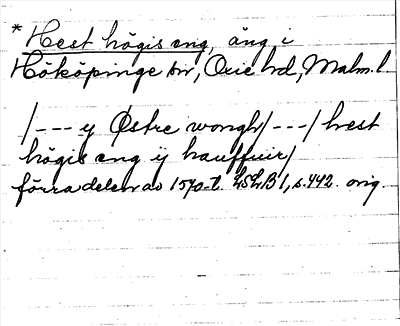 * Hest högis eng, äng i
Hököpinge sn, Oxie hd, Malm. l.
/--- y Østre wongh/---/ hest
högis eng ij hauffuir/
förra delen av 1570-t. LSLB 1, s. 442. orig.